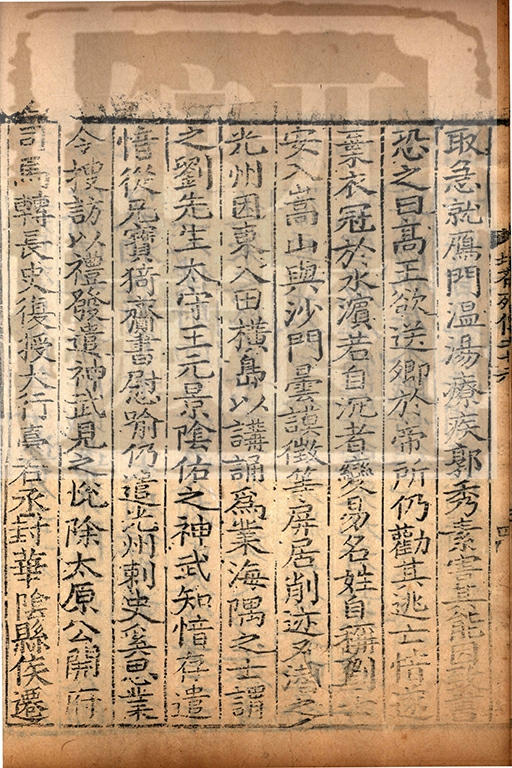 取急就鴈門温湯療疾郭秀素害其能因
恐之曰高王欲送卿於帝所仍勸其逃亡愔遂
棄衣冠於水濱若自沉者變易名姓自稱劉士
安入嵩山與沙門曇謨徵等屏居削迹又潛之
光州因東入田橫島以講誦爲業海隅之士謂
之劉先生太守王元景陰佑之神武知愔存遣
愔從兄寶猗齎書慰喻仍遣光州刺史奚思業
令搜訪以禮發遣神武見之悅除太原公開府
司馬轉長史復授大行臺右丞封華陰縣侯遷